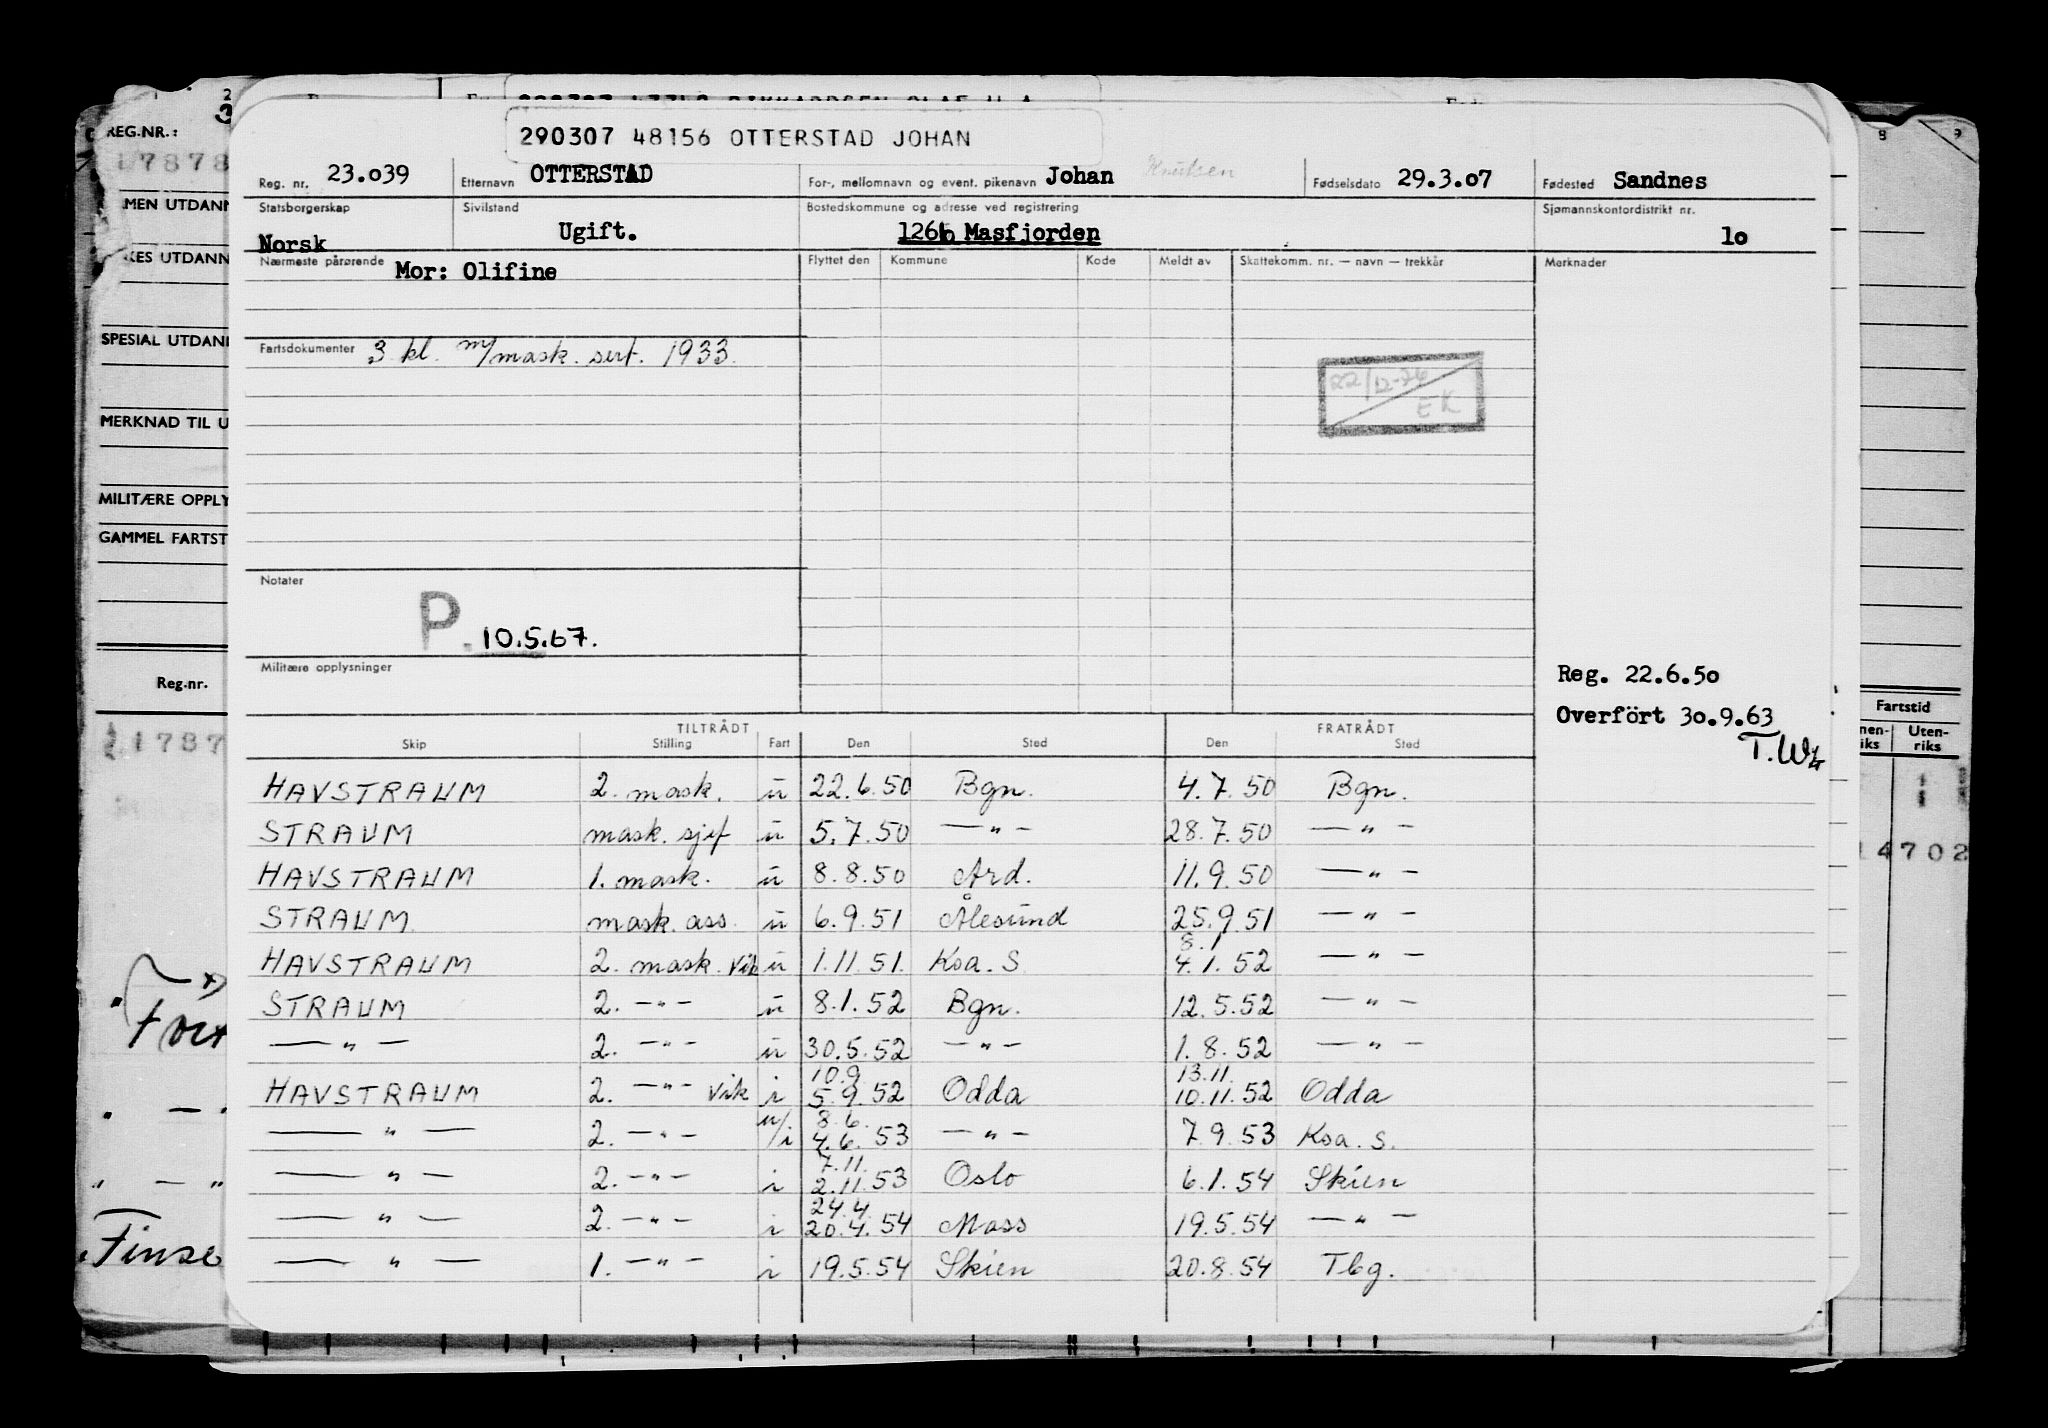 290307 48156 OTTERSTAD JOHAN
Reg. nr. 23.o39 Etternavn OTTERSTAD For-, mellomnavn og event. pikenavn Johan Knutsen Fødselsdato 29.3.o7 Fødested Sandnes
Statsborgerskap Norsk Sivilstand Ugift. Bostedskommune og adresse ved registrering 1266 Masfjorden Sjømannskontordistrikt nr. 1o
Nærmeste pårørende Mor: Olifine Flyttet den Kommune Kode Meldt av Skattekomm. nr. — navn — trekkår Merknader
Fartsdokumenter 3 kl. m/mask. sert. 1933.
22/12-76
EK
Notater
P. 10.5.67.
Militære opplysninger
Reg. 22.6.5o
Overført 3o.9.63
TILTRÅDT FRATRÅDT
Skip Stilling Fart Den Sted Den Sted
HAVSTRAUM 2. mask. u 22.6.50 Bgn. 4.7.50 Bgn.
STRAUM mask. sjef u 5.7.50 —"— 28.7.50 —"—
HAVSTRAUM 1. mask. u 8.8.50 Ard. 11.9.50 —"—
STRAUM mask. ass. u 6.9.51 Ålesund 25.9.51 —"—
8.1
HAVSTRAUM 2. mask. Vik u 1.11.51. Koa. S. 4.1.52 —"—
STRAUM 2. —"— u 8.1.52 Bgn. 12.5.52 —"—
—"— 2. —"— u 30.5.52 —"— 1.8.52 —"—
10.9. 13.11.
HAVSTRAUM 2. —"— Vik i 5.9.52 Odda 10.11.52 Odda
8.6.
—"— 2. —"— u/i 4.6.53 —"— 7.9.53 Koa. S.
7.11.
—"— 2. —"— i 2.11.53 Oslo 6.1.54 Skien
24.4.
—"— 2. —"— i 20.4.54 Moss 19.5.54 —"—
—"— 1. —"— i 19.5.54 Skien 20.8.54 Tbg.
REG.NR.:
7878
SPESIAL UTDAN
MERKNAD TIL U
MILITÆRE OPPLY
GAMMEL FARTST
Reg.-nr.
1787
Finse
Fartstid
Uten-
riks
4702